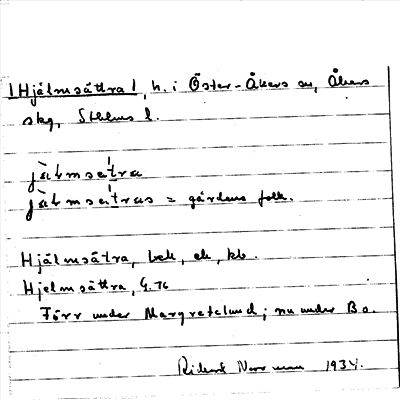 ! Hjälmsättra !, h. i Öster-Åkers sn, Åkers
skg, Sthlms l.
jälmsätra
jälmsätras = gårdens folk.
Hjälmsätra, bek, ek, kb.
Hjelmsättra, G. 76
Förr under Margretelund; nu under Bo.
Rickard Norrman 1934.